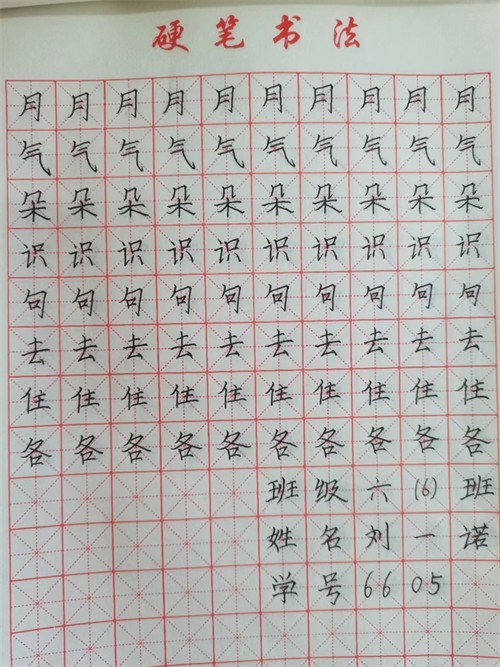 硬笔书法
月月月月月月月月月月
气气气气气气气气气气
朵朵朵朵朵朵朵朵朵朵
识识识识识识识识识识
句句句句句句句句句句
去去去去去去去去去去
住住住住住住住住住住
各各各各各各各各各各
班级六(6)班
姓名刘一诺
学号6605